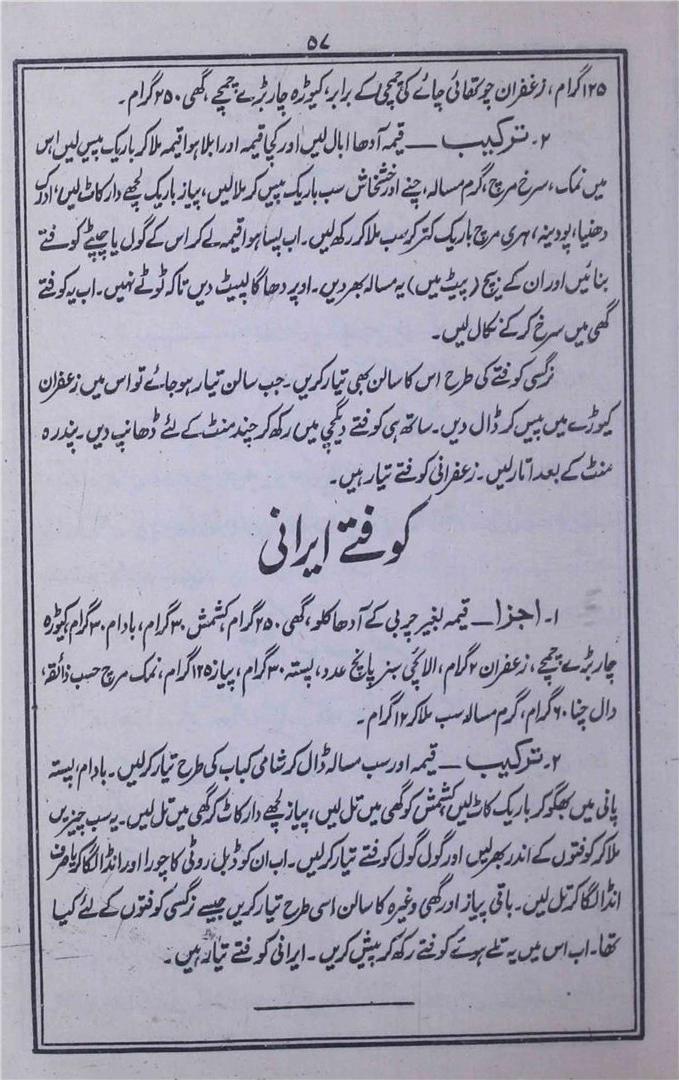 ۵۷
۱۲۵ گرام، زعفران چوتھائی چائے کی چمچی کے برابر، کیوڑہ چار بڑے چمچے، گھی ۲۵۰ گرام۔
۲۔ ترکیب ـــ قیمہ آدھا ابال لیں اور کچا قیمہ اور ابلا ہوا قیمہ ملا کر باریک پیس لیں اس
میں نمک، سرخ مرچ، گرم مسالہ، چنے اور خشخاش سب باریک پیس کر ملا لیں، پیاز باریک لچھے دار کاٹ لیں، ادرک
دھنیا، پودینہ، ہری مرچ باریک کتر کر سب ملا کر رکھ لیں۔ اب پسا ہوا قیمہ لے کر اس کے گول یا چپٹے کوفتے
بنائیں اور ان کے بیچ (پیٹ میں) یہ مسالہ بھر دیں۔ اوپر دھاگا لپیٹ دیں تاکہ ٹوٹے نہیں۔ اب یہ کوفتے
گھی میں سرخ کر کے نکال لیں۔
نرگسی کوفتے کی طرح اس کا سالن بھی تیار کریں۔ جب سالن تیار ہو جائے تو اس میں زعفران
کیوڑے میں پیس کر ڈال دیں۔ ساتھ ہی کوفتے دیگچی میں رکھ کر چند منٹ کے لئے ڈھانپ دیں۔ پندرہ
منٹ کے بعد اتار لیں۔ زعفرانی کوفتے تیار ہیں۔
کوفتے ایرانی
۱۔ اجزا ـــ قیمہ بغیر چربی کے آدھا کلو، گھی ۲۵۰ گرام، کشمش ۳۰ گرام، بادام ۳۰ گرام، کیوڑہ
چار بڑے چمچے، زعفران ۲ گرام، الائچی سبز پانچ عدد، پستہ ۳۰ گرام، پیاز ۱۲۵ گرام، نمک مرچ حسب ذائقہ،
دال چنا ۶۰ گرام، گرم مسالہ سب ملا کر ۱۲ گرام۔
۲۔ ترکیب ـــ قیمہ اور سب مسالہ ڈال کر شامی کباب کی طرح تیار کر لیں۔ بادام، پستہ
پانی میں بھگو کر باریک کاٹ لیں کشمش کو گھی میں تل لیں، پیاز لچھے دار کاٹ کر گھی میں تل لیں۔ یہ سب چیزیں
ملا کر کوفتوں کے اندر بھر لیں اور گول گول کوفتے تیار کر لیں۔ اب ان کو ڈبل روٹی کا چورا اور انڈا لگا کر یا صرف
انڈا لگا کر تل لیں۔ باقی پیاز اور گھی وغیرہ کا سالن اسی طرح تیار کریں جیسے نرگسی کوفتوں کے لئے کیا
تھا۔ اب اس میں یہ تلے ہوئے کوفتے رکھ کر پیش کریں۔ ایرانی کوفتے تیار ہیں۔